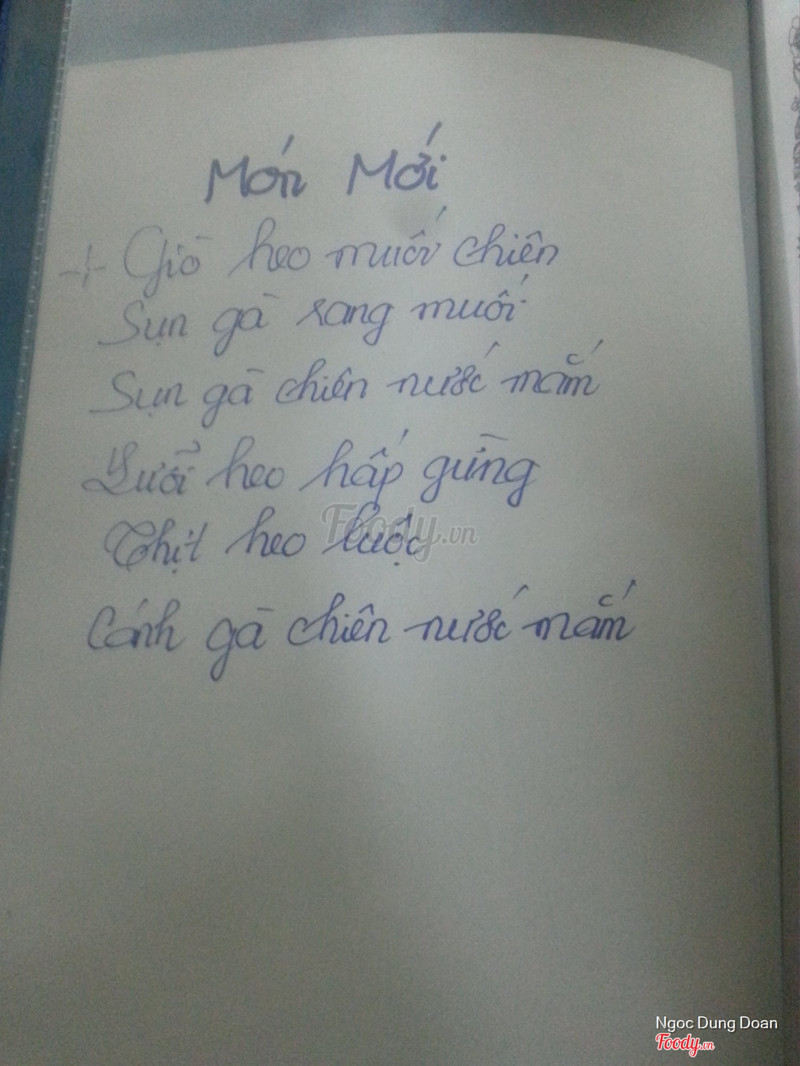 Món Mới
+ Giò heo muối chiên
Sụn gà rang muối
Sụn gà chiên nước mắm
Lưỡi heo hấp gừng
Thịt heo luộc
Cánh gà chiên nước mắm
Foody.vn
Ngoc Dung Doan
Foody.vn